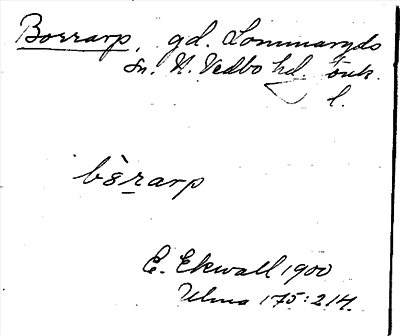 Borrarp, gd. Lommaryds
sn. N. Vedbo hd. Jönk.
l.
bèrarp
E. Ekwall 1900
Ulma 175:214.